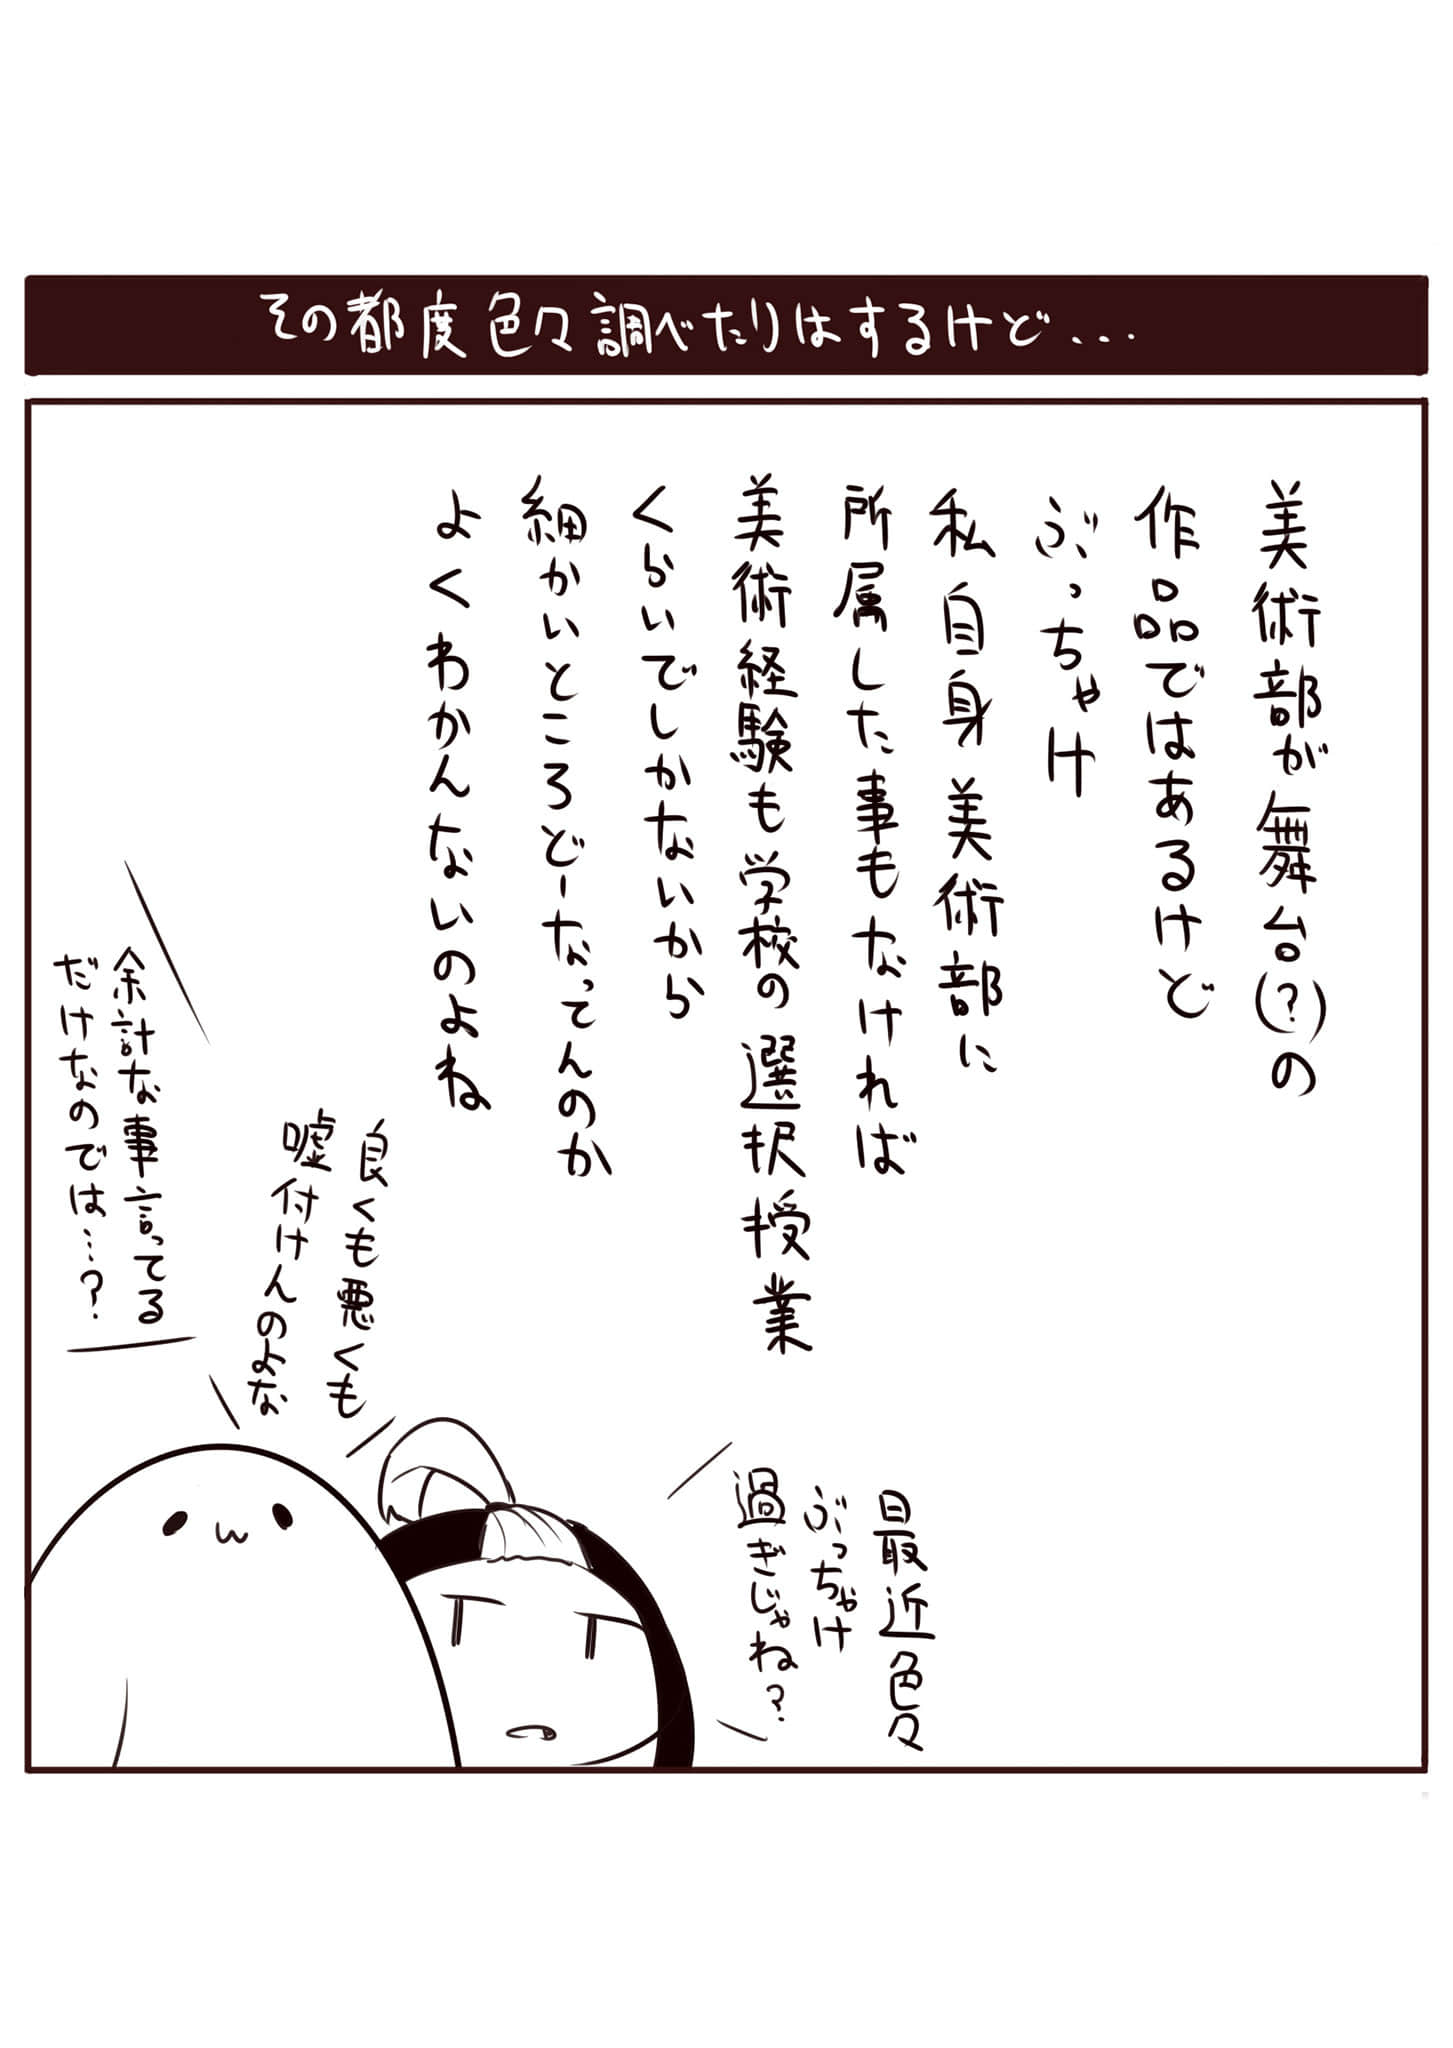 その都度色々調べたりはするけど...
美術部が舞台(?)の
作品ではあるけど
ぶっちゃけ
私自身美術部に
所属した事もなければ
美術経験も学校の選択授業
くらいでしかないから
細かいところどーなってんのか
よくわかんないのよね
最近色々
ぶっちゃけ
過ぎじゃね?
良くも悪くも
嘘付けんのよな
余計な事言ってる
だけなのでは…?